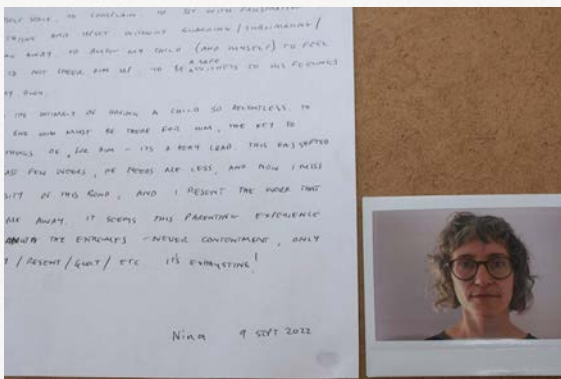 TO COMPLAIN. TO SIT WITH
AND UPSET WITHOUT
AWAY. TO ALLOW MY CHILD (AND MYSELF) TO FEEL
NOT CHEER HIM UP. TO BE A SAFE WITNESS TO HIS FEELINGS
AWAY.
THE INTIMACY OF HAVING A CHILD SO RELENTLESS. TO
ONE WHO MUST BE THERE FOR HIM, THE KEY TO
THINGS OK, FOR HIM – ITS A VERY LOAD. THIS HAS SHIFTED
FEW WEEKS, HE NEEDS ME LESS, AND NOW I MISS
OF THIS BOND, AND I RESENT THE WORK THAT
ME AWAY. IT SEEMS THIS PARENTING EXPERIENCE
THE EXTREMES – NEVER CONTENTMENT, ONLY
/ RESENT / GUILT / ETC IT'S EXHAUSTING!
Nina 9 SEPT 2022